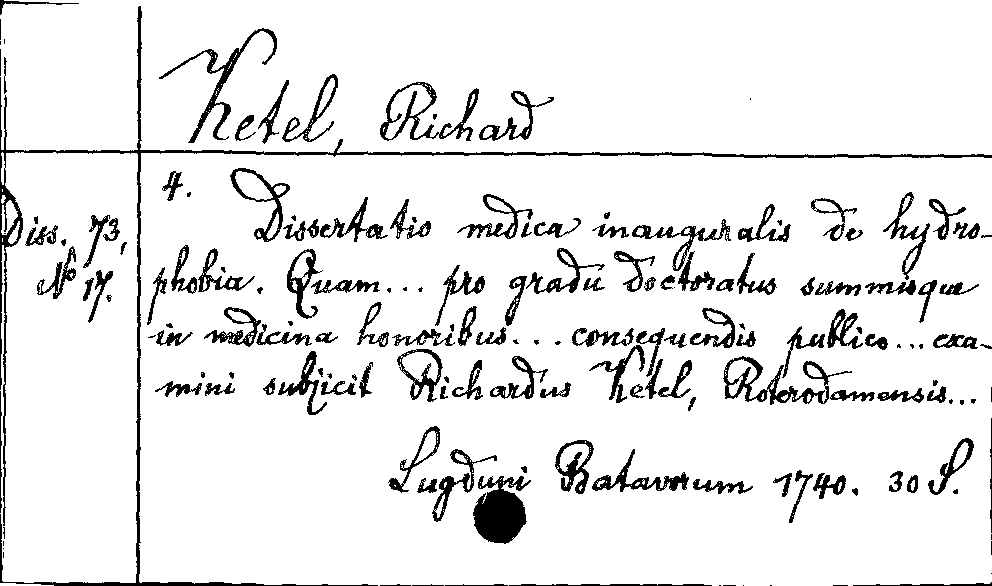 Ketel, Richard
Diss. 73,
No 17.
4.
Dissertatio medica inauguralis de hydro-
phobia. Quam... pro gradu doctoratus summisque
in medicina honoribus... consequendis publico... exa-
mini subjicit Richardus Ketel, Roterodamensis...
Lugduni Batavorum 1740. 30 S.